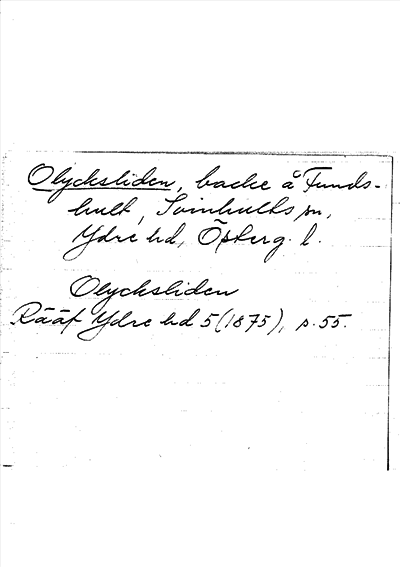 Olycksliden, backe å Funds-
hult, Svinhults sn,
Ydre hd, Österg. l.
Olycksliden
Rääf Ydre hd 5 (1875), s. 55.